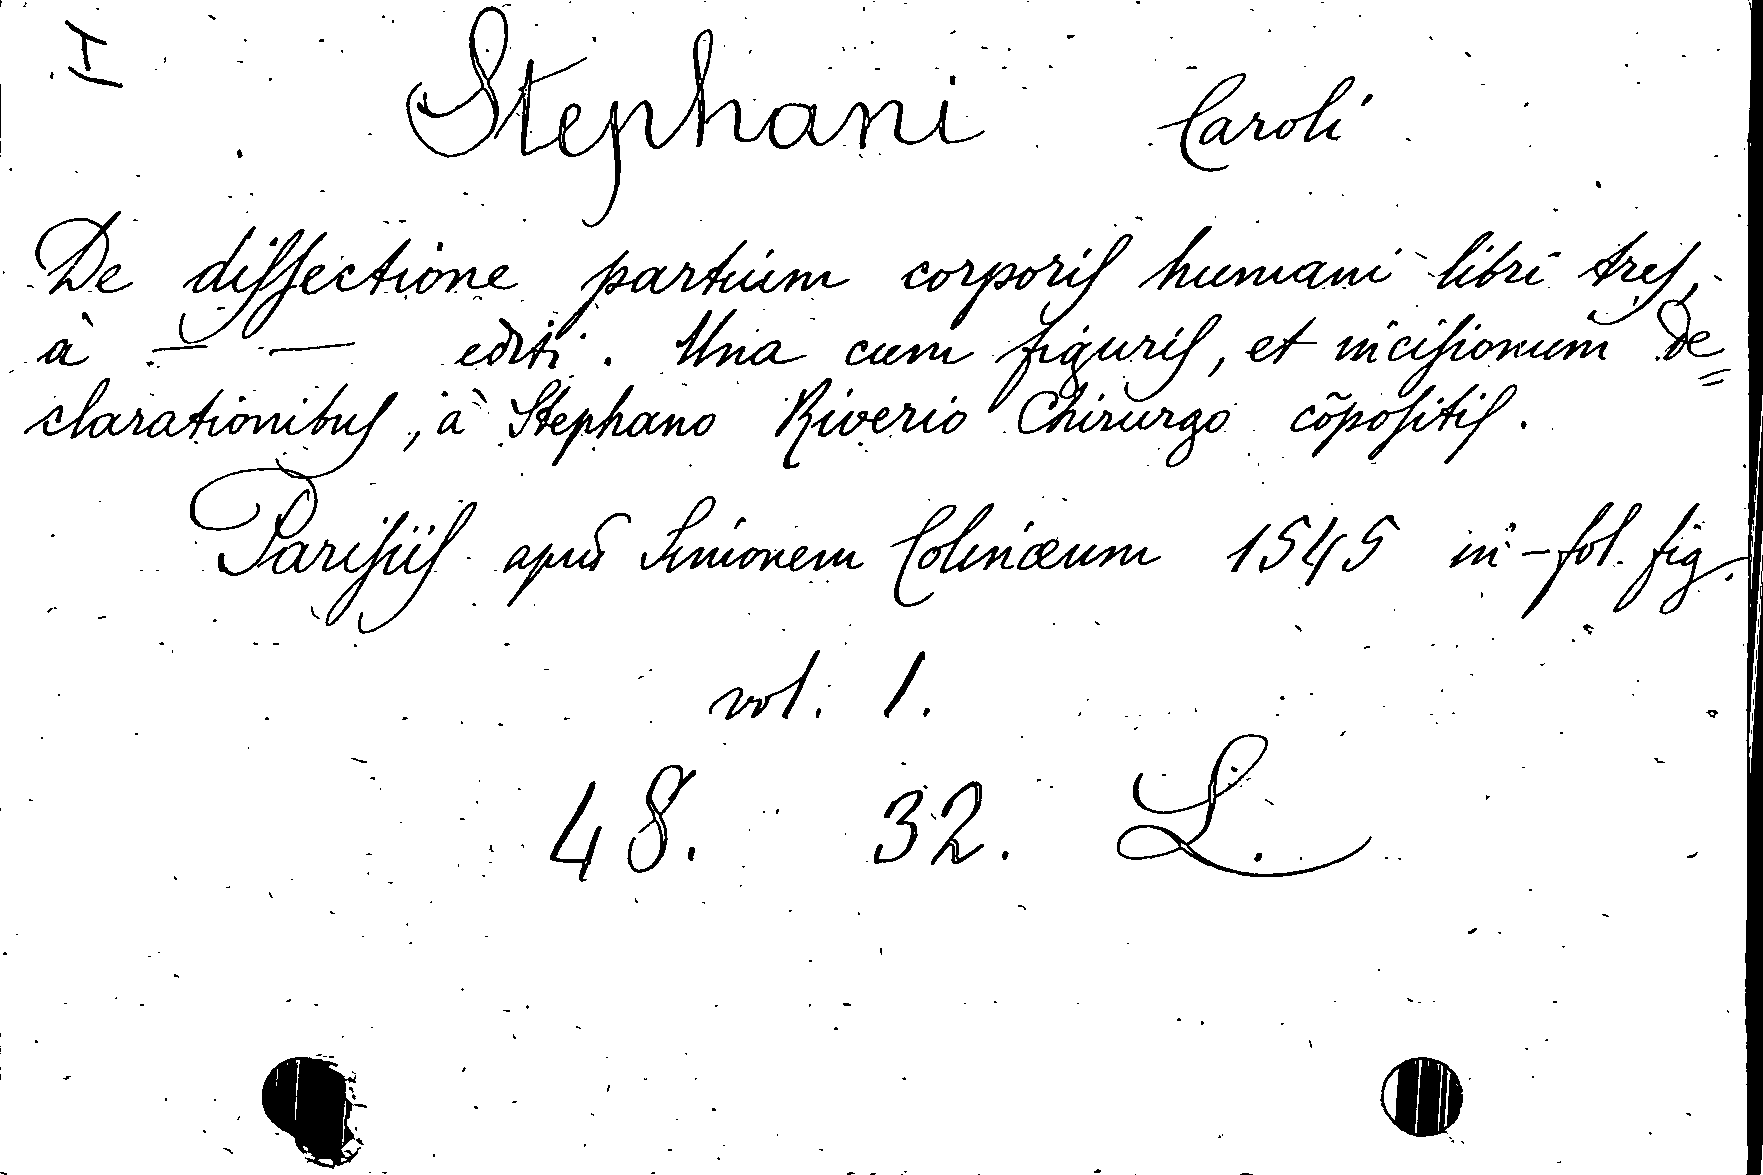 I
Stephani Caroli
De dissectione partium corporis humani libri tres,
à — — editi. Una cum figuris, et incisionum de=
clarationibus, à Stephano Riverio Chirurgo cõpositis.
Parisiis apud Simonem Colinæum 1545 in-fol. fig.
vol. 1.
48. 32. L.